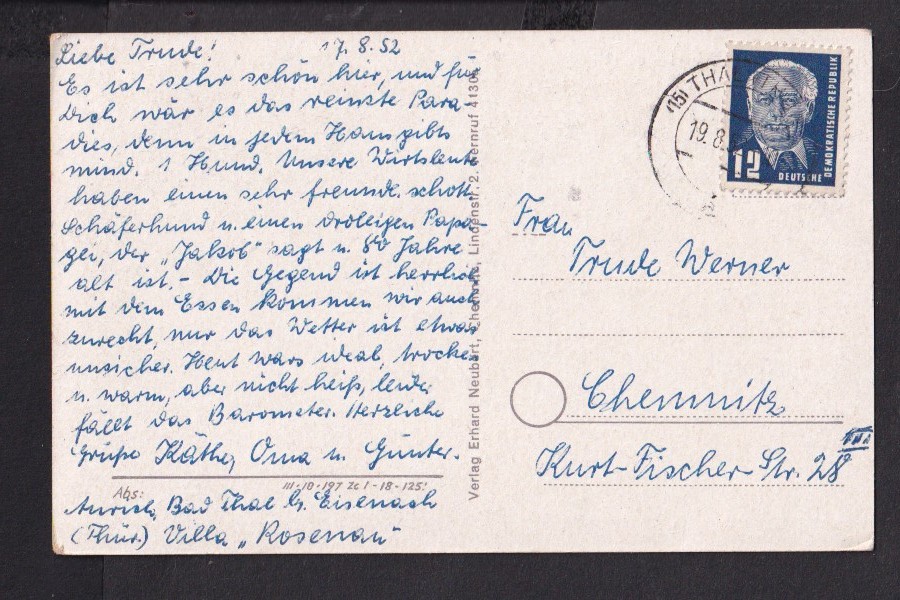 17.8.52
Liebe Trude!
Es ist sehr schön hier, und für
Dich wär es das reinste Para
dies, denn in jedem Haus gibts
mind. 1 Hund. Unsere Wirtsleute
haben einen sehr freundl. schott.
Schäferhund u. einen drolligen Papa-
gei, der „Jakob" sagt u. 80 Jahre
alt ist. - Die Gegend ist herrlich
mit dem Essen kommen wir auch
zurecht, nur das Wetter ist etwas
unsicher. Heut wars ideal, trocken
u. warm, aber nicht heiß, leider
fällt das Barometer. Herzliche
Grüße Käthe, Oma u. Günter.
III-18-197 Zc 1-18-125
Abs:
Aurich, Bad Thal b. Eisenach
(Thür.) Villa „Rosenau"
Verlag Erhard Neubert, Chemnitz, Lindenstr. 2. Fernruf 4130
(15) THAL
19.8.
12
DEUTSCHE
DEMOKRATISCHE REPUBLIK
Frau
Trude Werner
Chemnitz
Kurt-Fischer-Str. 28 III.